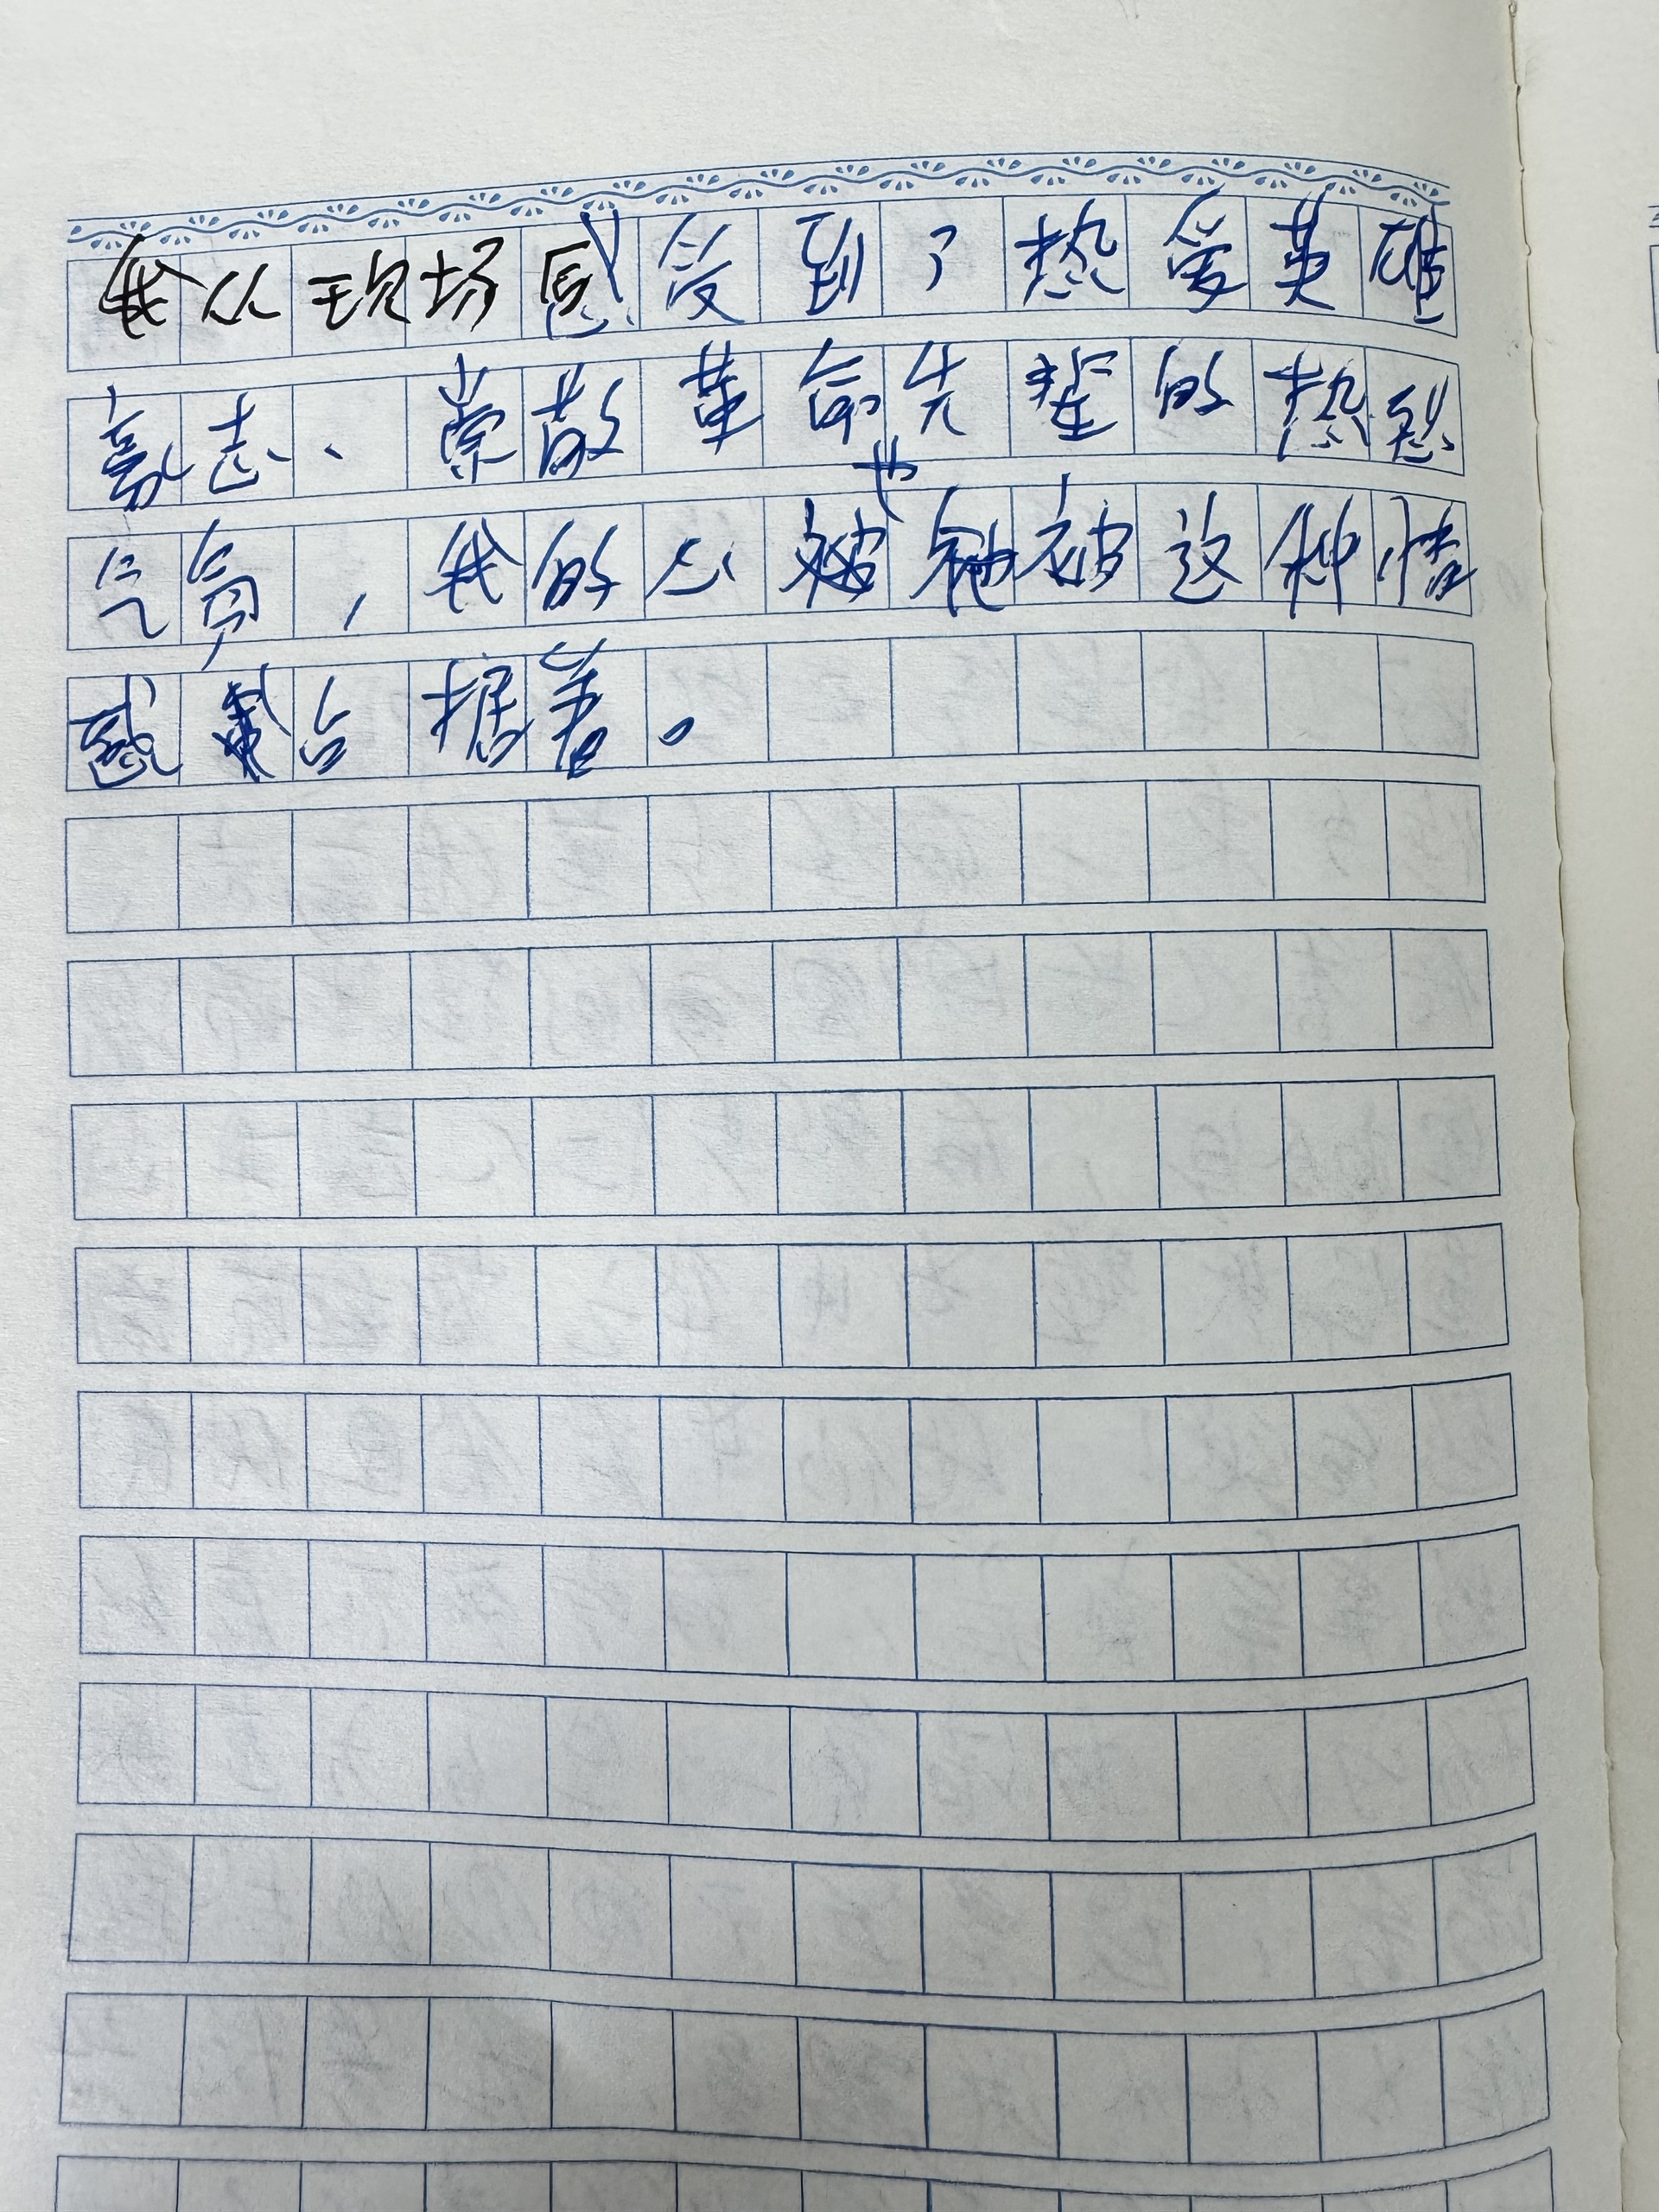 我从现场感受到了热爱英雄
豪杰、崇敬革命先辈的热烈
气氛，我的心也被这种情
感占据着。